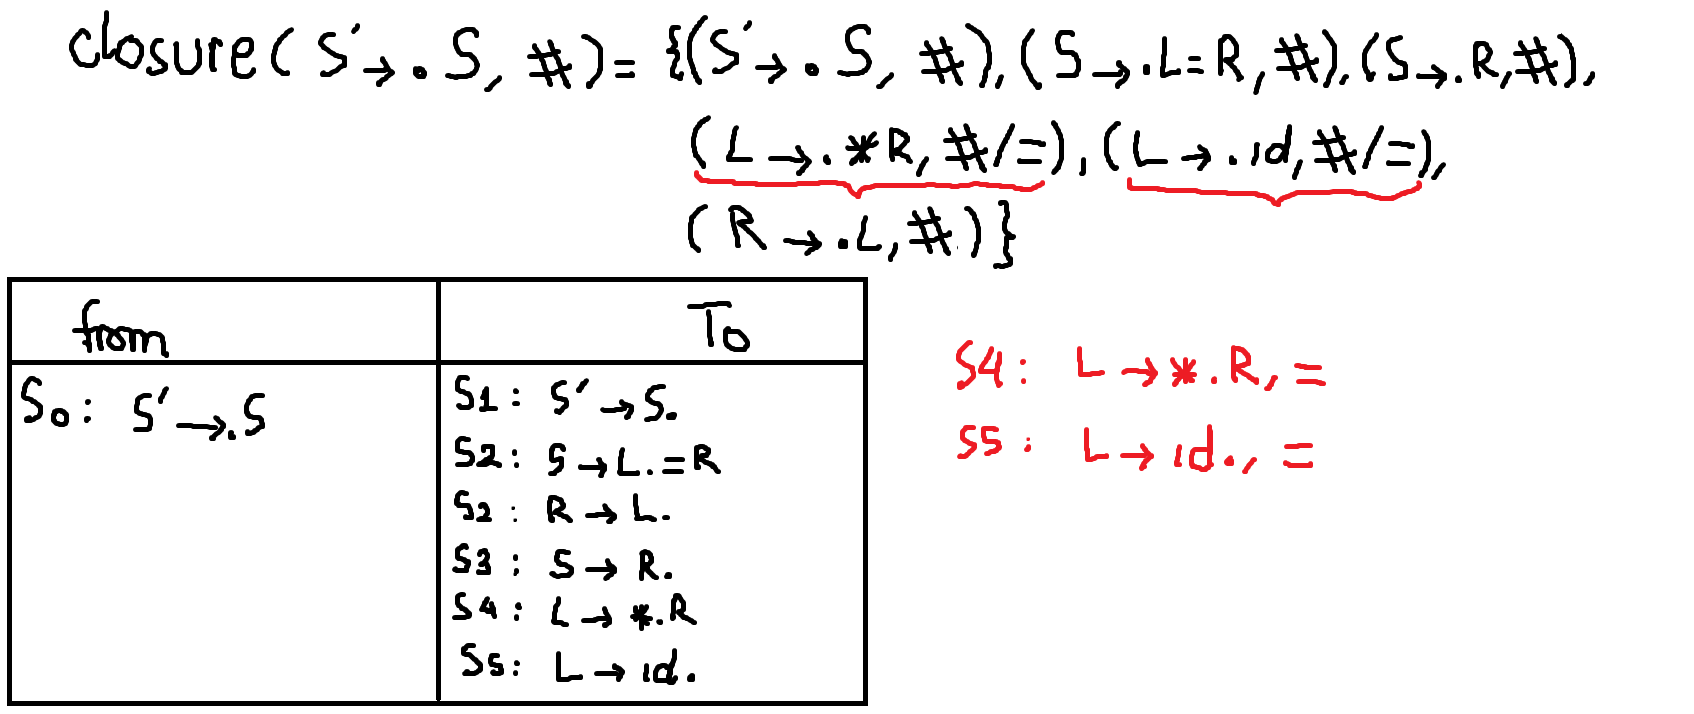 closure(S'→.S, #)= {(S'→.S, #),(S→.L=R,#),(S→.R,#),
(L→.*R,#/=),(L→.id,#/=),
(R→.L,#)}
from To
S0: S'→.S
S1: S'→S.
S2: S→L.=R
S2: R→L.
S3: S→R.
S4: L→*.R
S5: L→id.
S4: L→*.R, =
S5: L→id., =